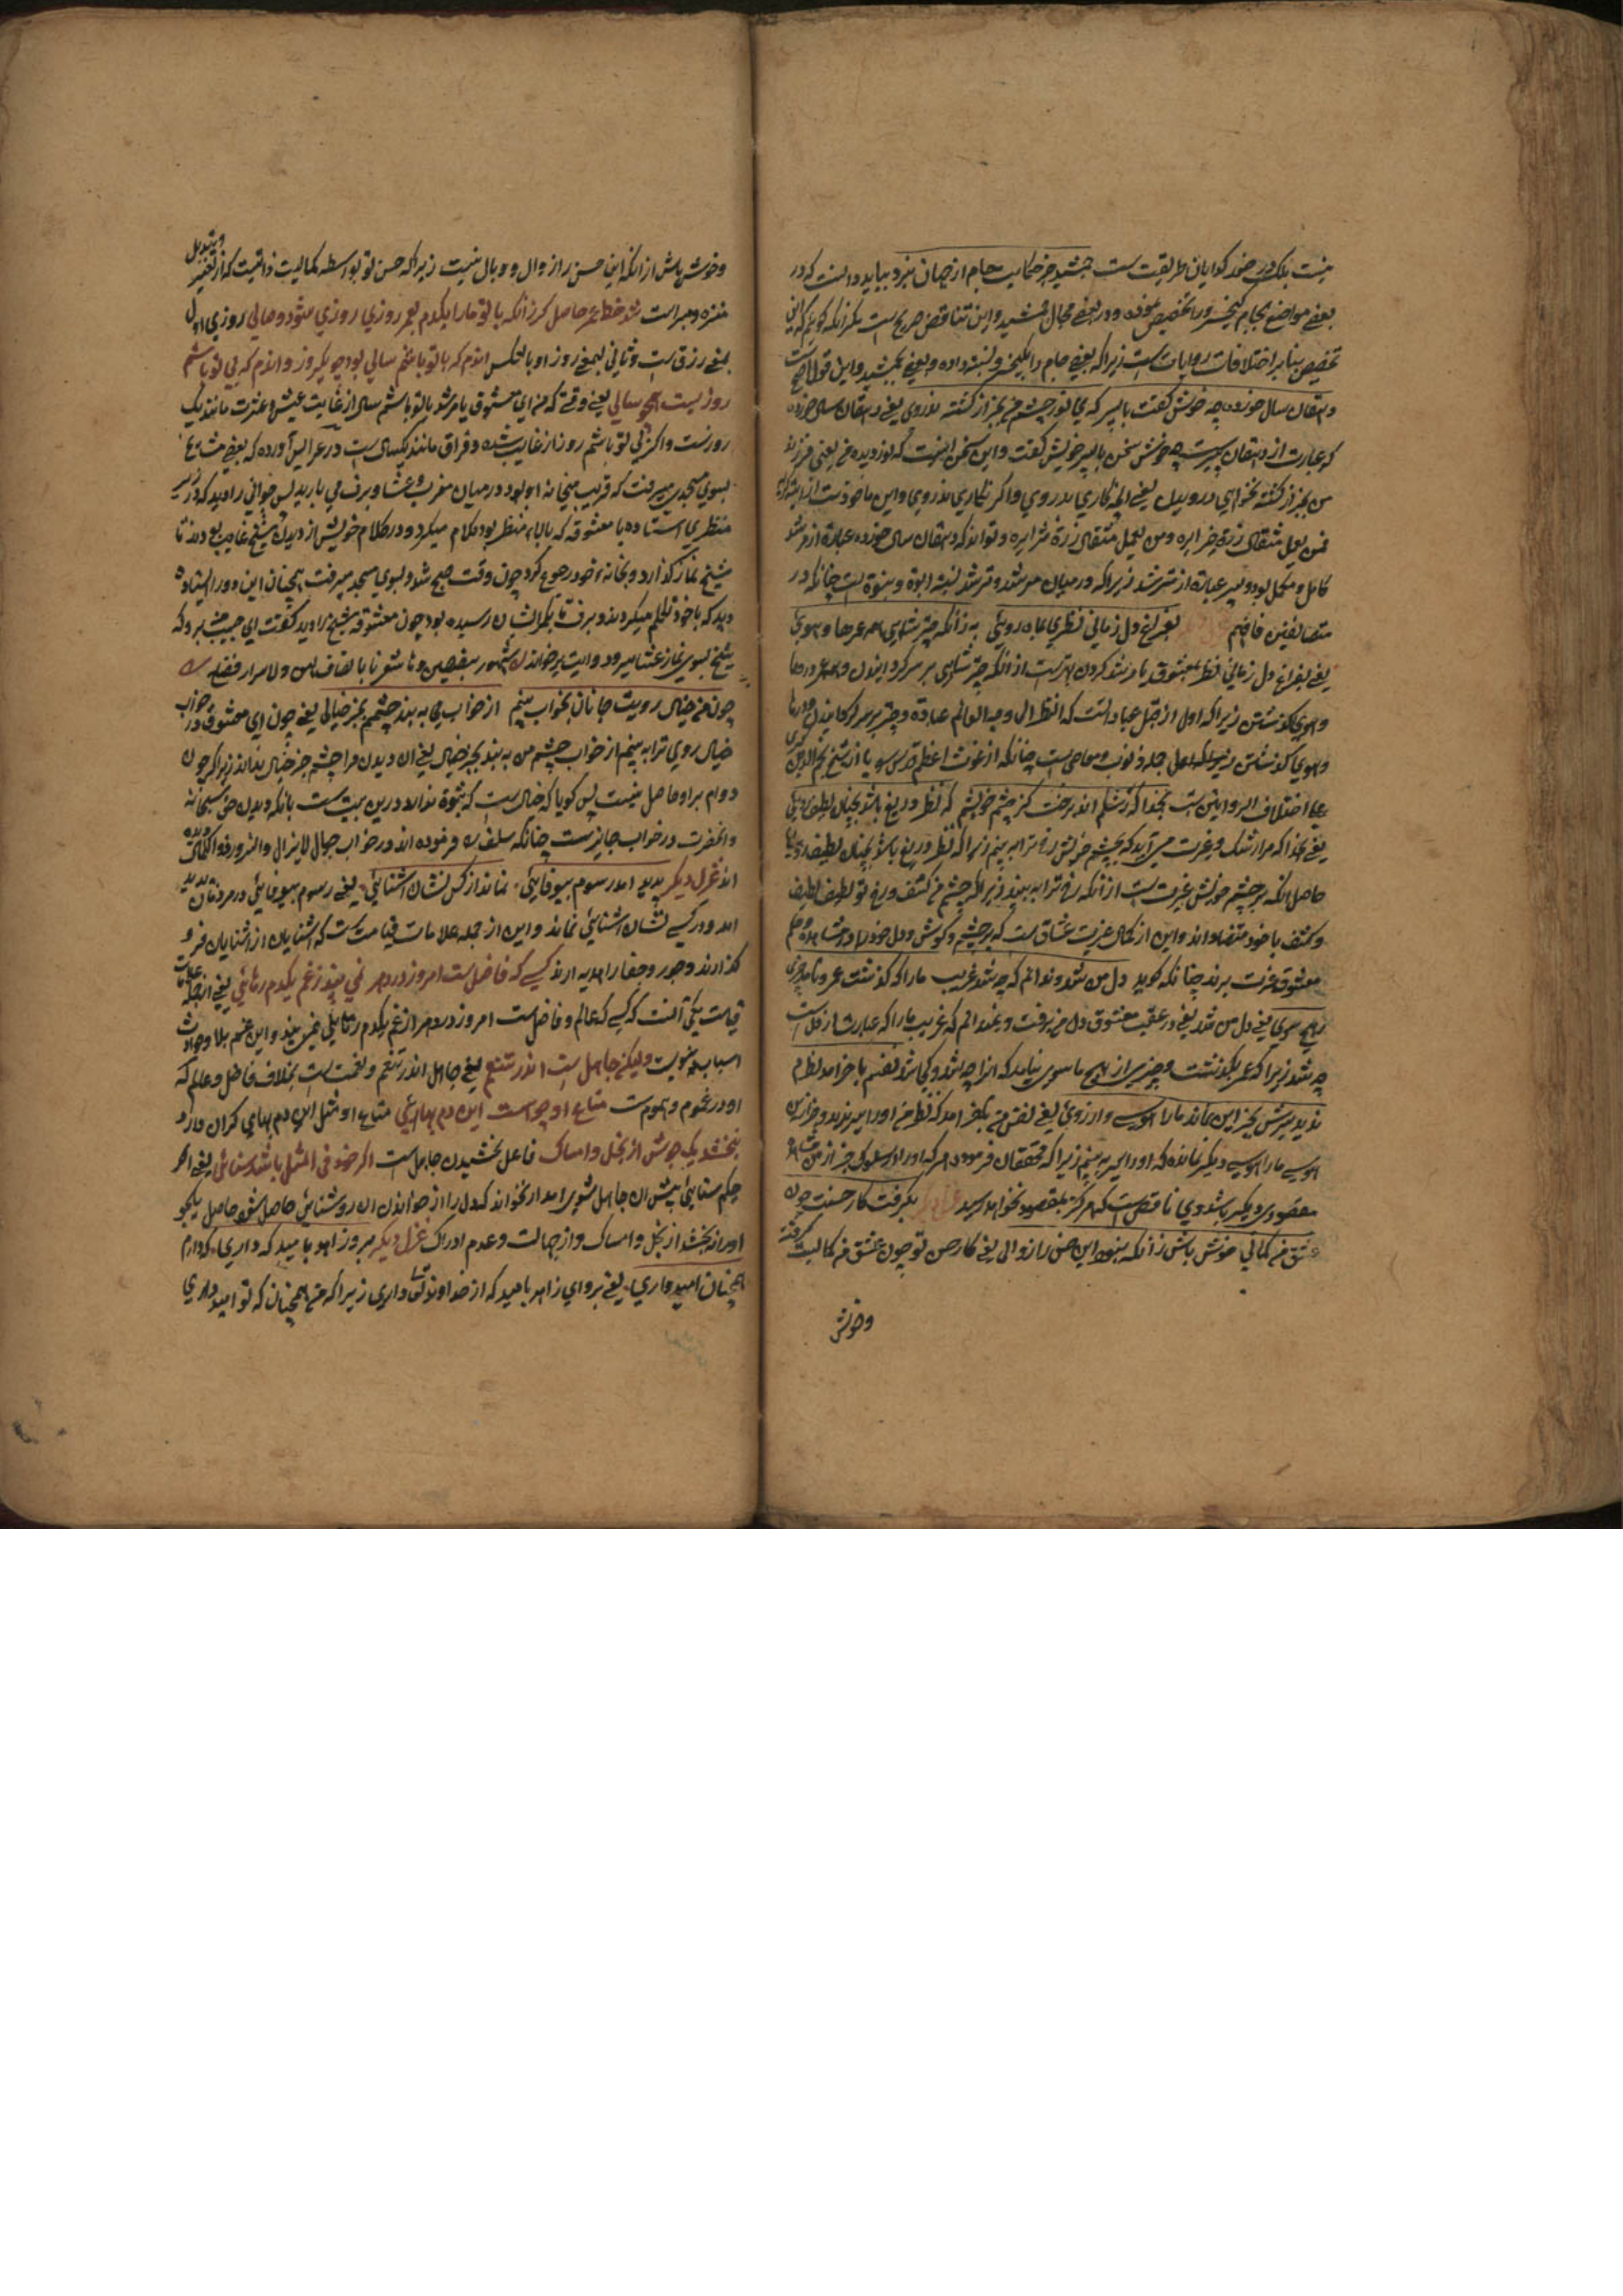 نیست بلک در ضمد کدایان طریقت است جمشید جز حکایت جام از جهان نبرد بباید دانست که در
بعضے مواضع بجام کیخسرو را تخصیص نموده و در بعضے محال جمشید و این تناقض صریح است مکر انکه کویم که این
تخصیص بنابر اختلافات روایات است زیرا که بعضے جام را بکیخسرو نسبت داده و بعضے بجمشید و این قول اصح است
دهقان سال خورده چه خوش کفت با پسر که ای نور چشم من بجز از کشته ندروی یعنے دهقان سال خورده
که عبارت از دهقان پیر است چه خوش سخن با پسر خویش کفت و این سخن اینست که نور دیده من یعنی فرزند
من بجز از کشته نخواهی دروید یعنے انچه نکاری بدروی واکر نکاری ندروی و این ماخوذ است از
فمن یعمل مثقال ذرة خیرا یره ومن یعمل مثقال ذرة شرا یره و تواند که دهقان سال خورده عبارة از مرشد
کامل و مکمل بود و پسر عبارة از مسترشد زیرا که در میان مرشد و مسترشد نسبت ابوة و بنوة است چنانکه در
متضایفین فافهم غزل دیکر بفراغ دل زمانی نظری بماه روئی به زانکه چتر شاهی همه عمر ها و هوی
یعنے بفراغ دل زمانی نظر بمعشوق یا مرشد کردن بهتر است از انکه چتر شاهی بر سر کردانیدن و همه عمر در ها
و هوی کذشتن زیرا که اول از قبیل عبادتست که النظر الی وجه العالم عبادة و چتر بر سر کردانیدن و در ها
و هوی کذشتن جمله ذنوب و معاصی است چنانکه از غوث اعظم قدس سره یا از شیخ نجم الدین کبری
علی اختلاف الروایتین است بخدا که رشکم اید رخت کز چشم خویشم که نظر دریغ باشد بچنان لطیف روئی
یعنے بخدا که مرا رشک و غیرت می آید که بچشم خویش رخ ترا به بینم زیرا که نظر دریغ باشد بچنان لطیف روئی
حاصل انکه بر چشم خویش غیرت است از انکه رخ ترا به بیند زیرا که چشم من کثیف و رخ تو لطیف لطیف
و کثیف با خود متضاد اند و این از کمال غیرت عشاق است که بر چشم و کوش و دل خود را در مشاهده و علم
معشوق غیرت برند چنانکه کوید دل من شد و ندانم که چه شد غریب ما را که کذشت عمر و نامد خبری
ز هیچ سوی یعنے دل من شد یعنے در عقب معشوق دل من برفت و نمیدانم که غریب ما را که عبارت از دل است
چه شد زیرا که عمر بکذشت و خبری از هیچ ما سوی نیامد که انرا چه شد و کجا شد نفسم باخر امد نظرم
ندید سیرش بجز این نماند ما را هوسی و ارزوئی یعنے نفس من باخر امد که نظر من اورا سیر ندید و جز این
هوسے ما را هوسے دیکر نمانده که اورا سیر به بینم زیرا که محققان فرموده هر که اورا در سلوک جز از من
مقصودی دیکر باشد وی ناقص است که هرکز بمقصود نخواهد رسید غزل دیکر بکرفت کار حسنت چون
عشق من کمالی خوش باش زانکه نبود این حسن را زوالی یعنے کار حسن تو چون عشق من کمالیت کرفته
وخوش
وخوش باش از انکه این حسن را زوال و وبال نیست زیرا که حسن تو بواسطه کمالیت ذاتیت که از تغییر و تبدیل
منزه و مبراست شد خط عمر حاصل کر زانکه با تو ما را یکدم بعمر روزی روزی شود وصالی روزی اول
بمعنے رزق است و ثانی بمعنے روز او بالعکس اندم که با تو باشم سالی بود چو یکروز واندم که بی تو باشم
روزیست همچو سالی یعنے وقتے که من ای معشوق یا مرشد با تو باشم سال از غایت عیش و عشرت مانند یک
روزست واکر بی تو باشم روز از غایت شده و فراق مانند یکسال است در عرایس آورده که بعضے مشایخ
بسوی مسجدی میرفت که قریب میخانه او بود در میان مغرب و عشا و برف می بارید پس جوانی را دید که در زیر
منظری استاده با معشوقه که بالاء منظر بود کلام میکرد و در کلام خویش از دیدن شیخ غایب بودند تا
شیخ نماز کذارد و بخانه خود رجوع کرد چون وقت صبح شد و بسوی مسجد میرفت همچنان این دو را ایستاده
دید که باخود تکلم میکردند و برف تا بکمر ایشان رسیده بود چون معشوقه شیخ را دید کفت ای حبیب برو که
شیخ بسوی نماز عشا میرود
چون من خیال رویت جانان بخواب بینم از خواب می نه بیند چشمم بجز خیالی یعنے چون ای معشوق در خواب
خیال روی ترا به بینم از خواب چشم من نه بیند بجز خیال یعنے ان دیدن مرا چشم جز خیال نداند زیرا که چون
دوام بر او حاصل نیست پس کویا که خیال است که ثبوة ندارد درین بیت است بانکه دیدن حق سبحانه
وانحضرت در خواب جایز ست چنانکه سلف ره فرموده اند در خواب جمال لایزال والسرور دیده
اند غزل دیکر پدید امد رسوم بیوفائی نماند از کس نشان اشنائی یعنے رسوم بیوفائی در مردمان پدید
امد و در کسے نشان اشنائی نماند و این از جمله علامات قیامت است که اشنایان از اشنایان فرو
کذارند و جور و جفا را هدیه ارند کسے که فاضل است امروز در دهر نمی بیند ز غم یکدم رهائی یعنے از جمله علامات
قیامت یکی آنست که کسے که عالم و فاضل است امروز در دهر از غم یکدم رهائی نمی بیند و این غم بلا و حوادث
اسباب دنیوی ولیکن جاهل است اندر تنعم یعنے جاهل اندر تنعم و نعمت است بخلاف فاضل و عالم که
او در غموم و هموم ست متاع او چو هست این دم بهائی متاع او مثل این دم بهای کران دارد
نبخشد یک جوش از بخل و امساک فاعل بخشیدن جاهل ست اکر خود فی المثل باشد سنائی یعنے اکر
حکیم سنائی پیش ان جاهل شعری ابدار بخواند که دل را از خواندن ان روشنائی حاصل شود حاصل یکجو
اورا نه بخشد از بخل و امساک و از جهالت و عدم ادراک غزل دیکر برو زاهد بامید که داری که دارم
همچنان امیدواری یعنے برو ای زاهد بامید که از خداوند تعالی داری زیرا که من همچنان که تو امید داری